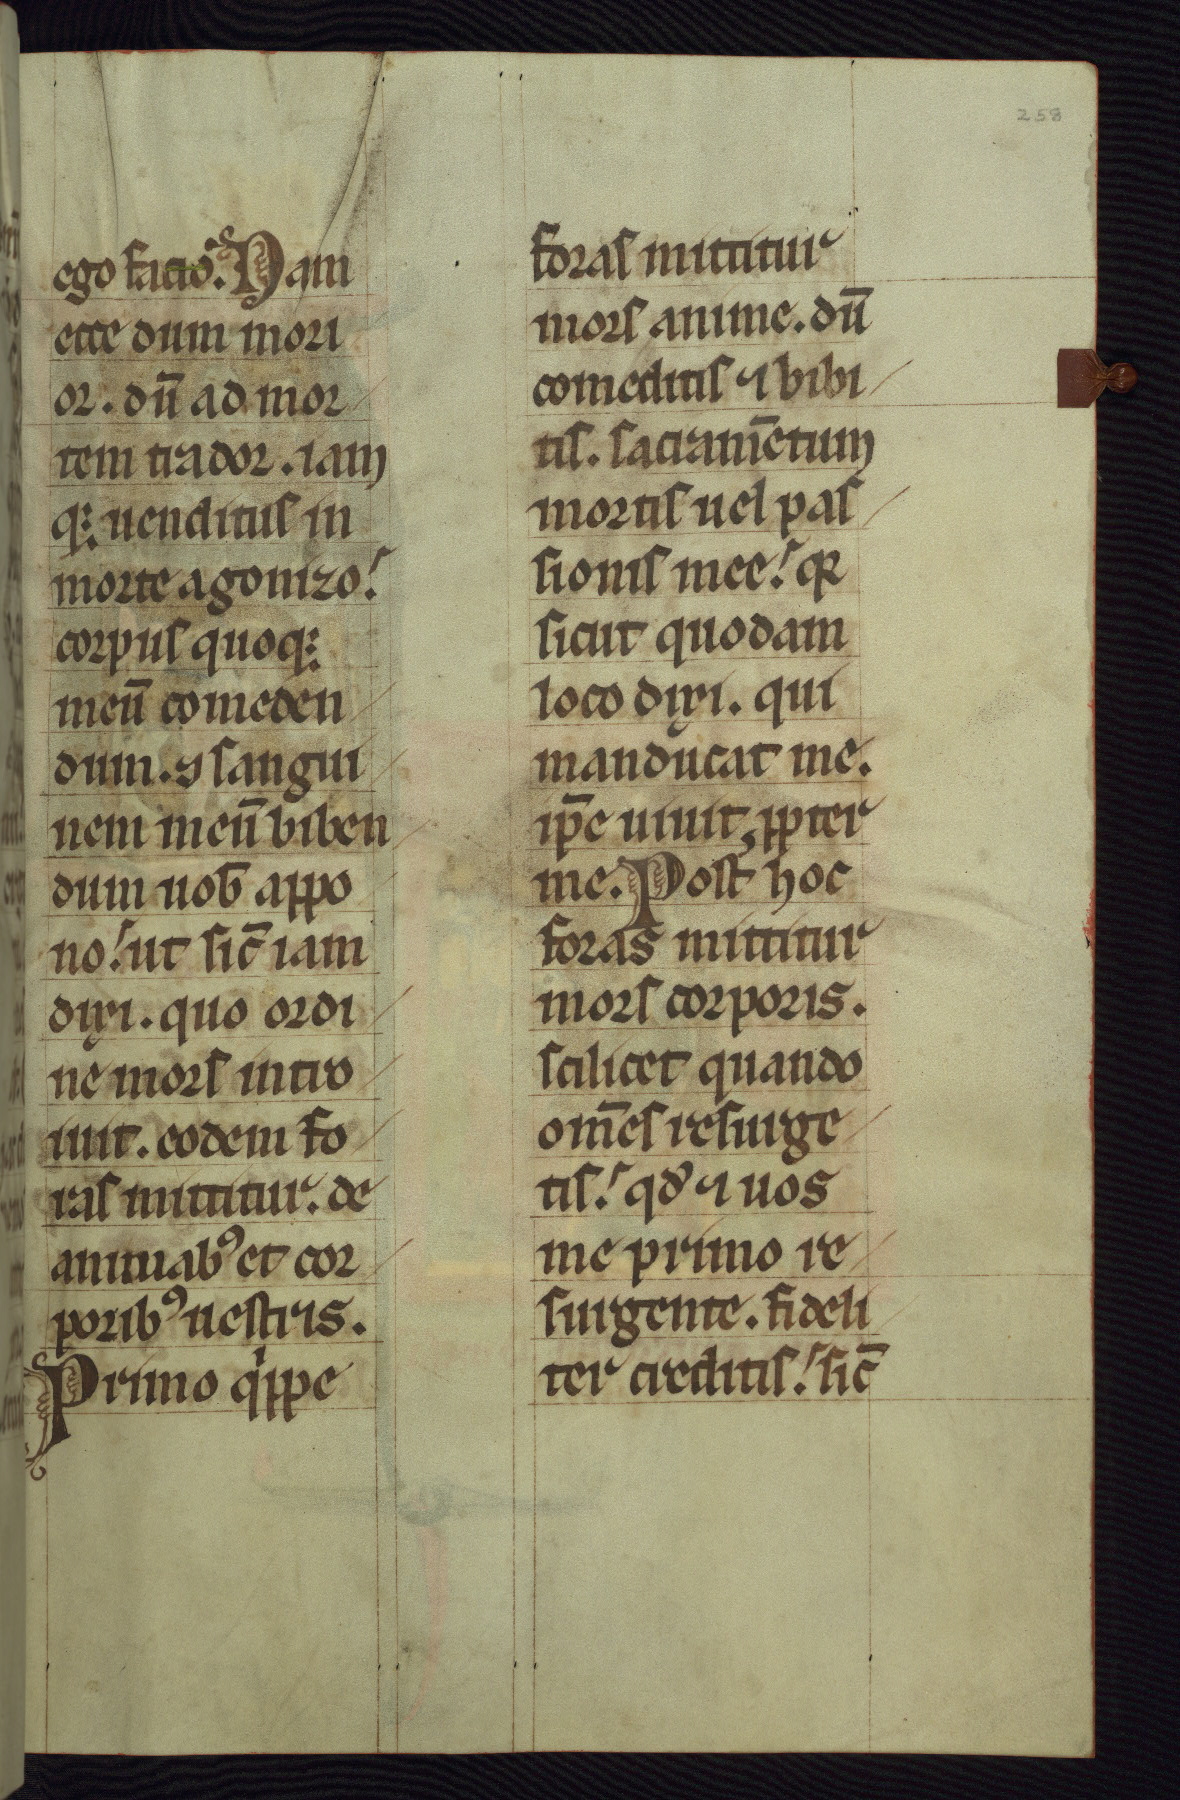 258
ego facio. Nam
ecce dum mori
or. dū ad mor
tem trador. iam
q; uenditus in
morte agonizo.
corpus quoq;
meū comeden
dum. ⁊ sangui
nem meū biben
dum uob̄ appo
no. ut sic̄ iam
dixi. quo ordi
ne mors intro
iuit. eodem fo
ras mittitur. de
animabꝰ et cor
poribꝰ uestris.
Primo qͥppe
foras mittitur
mors anime. dū
comeditis ⁊ bibi
tis. sacram̄etum
mortis uel pas
sionis mee. qꝛ
sicut quodam
loco dixi. qui
manducat me.
ip̄e uiuit ꝓpter
me. Post hoc
foras mittitur
mors corporis.
scilicet quando
om̄es resurge
tis. qd̓ ⁊ uos
me primo re
surgente. fideli
ter creditis. sic̄